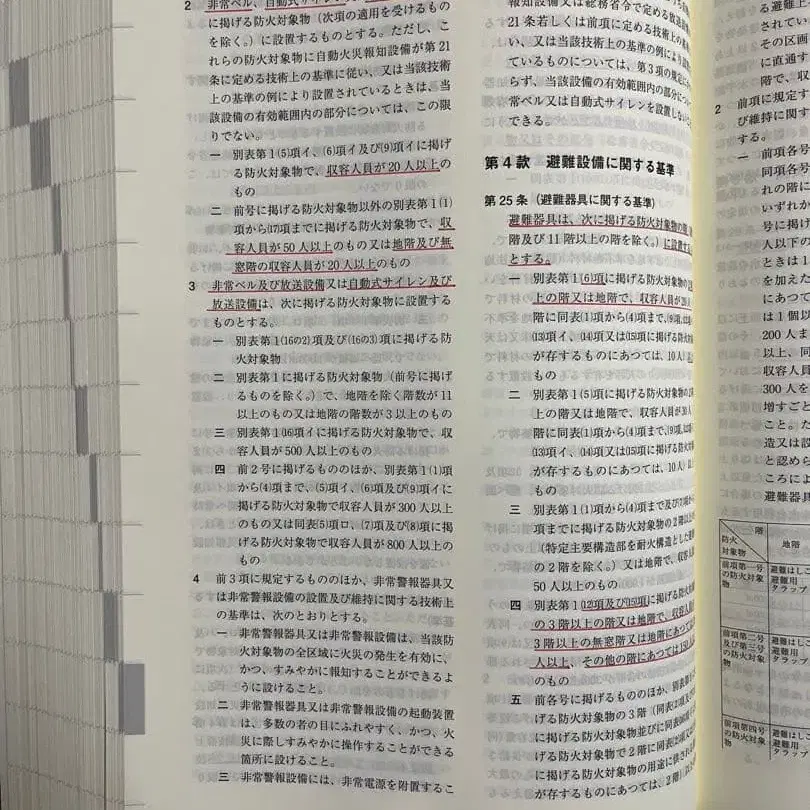 2 非常ベル、自動式サイレン
に掲げる防火対象物（次項の適用を受けるもの
を除く。）に設置するものとする。ただし、こ
れらの防火対象物に自動火災報知設備が第21
条に定める技術上の基準に従い、又は当該技術
上の基準の例により設置されているときは、当
該設備の有効範囲内の部分については、この限
りでない。
一 別表第1⑸項イ、⑹項イ及び⑼項イに掲げ
る防火対象物で、収容人員が20人以上の
もの
二 前号に掲げる防火対象物以外の別表第1⑴
項から⒄項までに掲げる防火対象物で、収
容人員が50人以上のもの又は地階及び無
窓階の収容人員が20人以上のもの
3 非常ベル及び放送設備又は自動式サイレン及び
放送設備は、次に掲げる防火対象物に設置する
ものとする。
一 別表第1(16の2)項及び(16の3)項に掲げる防
火対象物
二 別表第1に掲げる防火対象物（前号に掲げ
るものを除く。）で、地階を除く階数が11
以上のもの又は地階の階数が3以上のもの
三 別表第1⒃項イに掲げる防火対象物で、収
容人員が500人以上のもの
四 前2号に掲げるもののほか、別表第1⑴項
から⑷項まで、⑸項イ、⑹項及び⑼項イに
掲げる防火対象物で収容人員が300人以上
のもの又は同表⑸項ロ、⑺項及び⑻項に掲
げる防火対象物で収容人員が800人以上の
もの
4 前3項に規定するもののほか、非常警報器具又
は非常警報設備の設置及び維持に関する技術上
の基準は、次のとおりとする。
一 非常警報器具又は非常警報設備は、当該防
火対象物の全区域に火災の発生を有効に、
かつ、すみやかに報知することができるよ
うに設けること。
二 非常警報器具又は非常警報設備の起動装置
は、多数の者の目にふれやすく、かつ、火
災に際しすみやかに操作することができる
箇所に設けること。
三 非常警報設備には、非常電源を附置するこ
報知設備又は総務省令で定める放送
21条若しくは前項に定める技術上の基
い、又は当該技術上の基準の例により
ているものについては、第3項の規定に
らず、当該設備の有効範囲内の部分につい
常ベル又は自動式サイレンを設置しない
できる。
第4款 避難設備に関する基準
第25条（避難器具に関する基準）
避難器具は、次に掲げる防火対象物の階
階及び11階以上の階を除く。）に設置
とする。
一 別表第1⑹項に掲げる防火対象物の
上の階又は地階で、収容人員が20人
階に同表⑴項から⑷項まで、⑼項、
⒀項イ、⒁項又は⒂項に掲げる防火対
が存するものにあつては、10人）
もの
二 別表第1⑸項に掲げる防火対象物の
上の階又は地階で、収容人員が30人
階に同表⑴項から⑷項まで、⑼項、
⒀項イ、⒁項又は⒂項に掲げる防火対
が存するものにあつては、10人）以
もの
三 別表第1⑴項から⑷項まで及び⑺項
項までに掲げる防火対象物の2階以
（特定主要構造部を耐火構造とした建
の2階を除く。）又は地階で、収容人員
50人以上のもの
四 別表第1⑿項及び⒂項に掲げる防火
の3階以上の階又は地階で、収容人員
3階以上の無窓階又は地階にあつては
人以上、その他の階にあつては150人
のもの
五 前各号に掲げるもののほか、別表
げる防火対象物の3階（同表⑵項及
げる防火対象物並びに同表
火対象物で2階に同表
に掲げる防火対象物の用途に供され
するものにあつては、2階）以
る避難上
されてい
その区画
に直通す
階で、収
2 前項に規定す
び維持に関す
する。
一 前項各号
同項各号
れの階に
いずれか
号に掲げ
人以下の
ときは1
を加えた
にあつて
は1個以
200人ま
以上、同
収容人員
300人を
増すごと
こと。た
造又は設
と認めら
ころによ
避難器具
階
防火
対象物
地階
前項第一号
の防火対象
物
避難はしご
避難用
タラップ
前項第二号
及び第三号
の防火対象
物
避難はしご
避難用
タラップ
前項第四号
の防火対象
物
避難はしご
避難用
タラップ